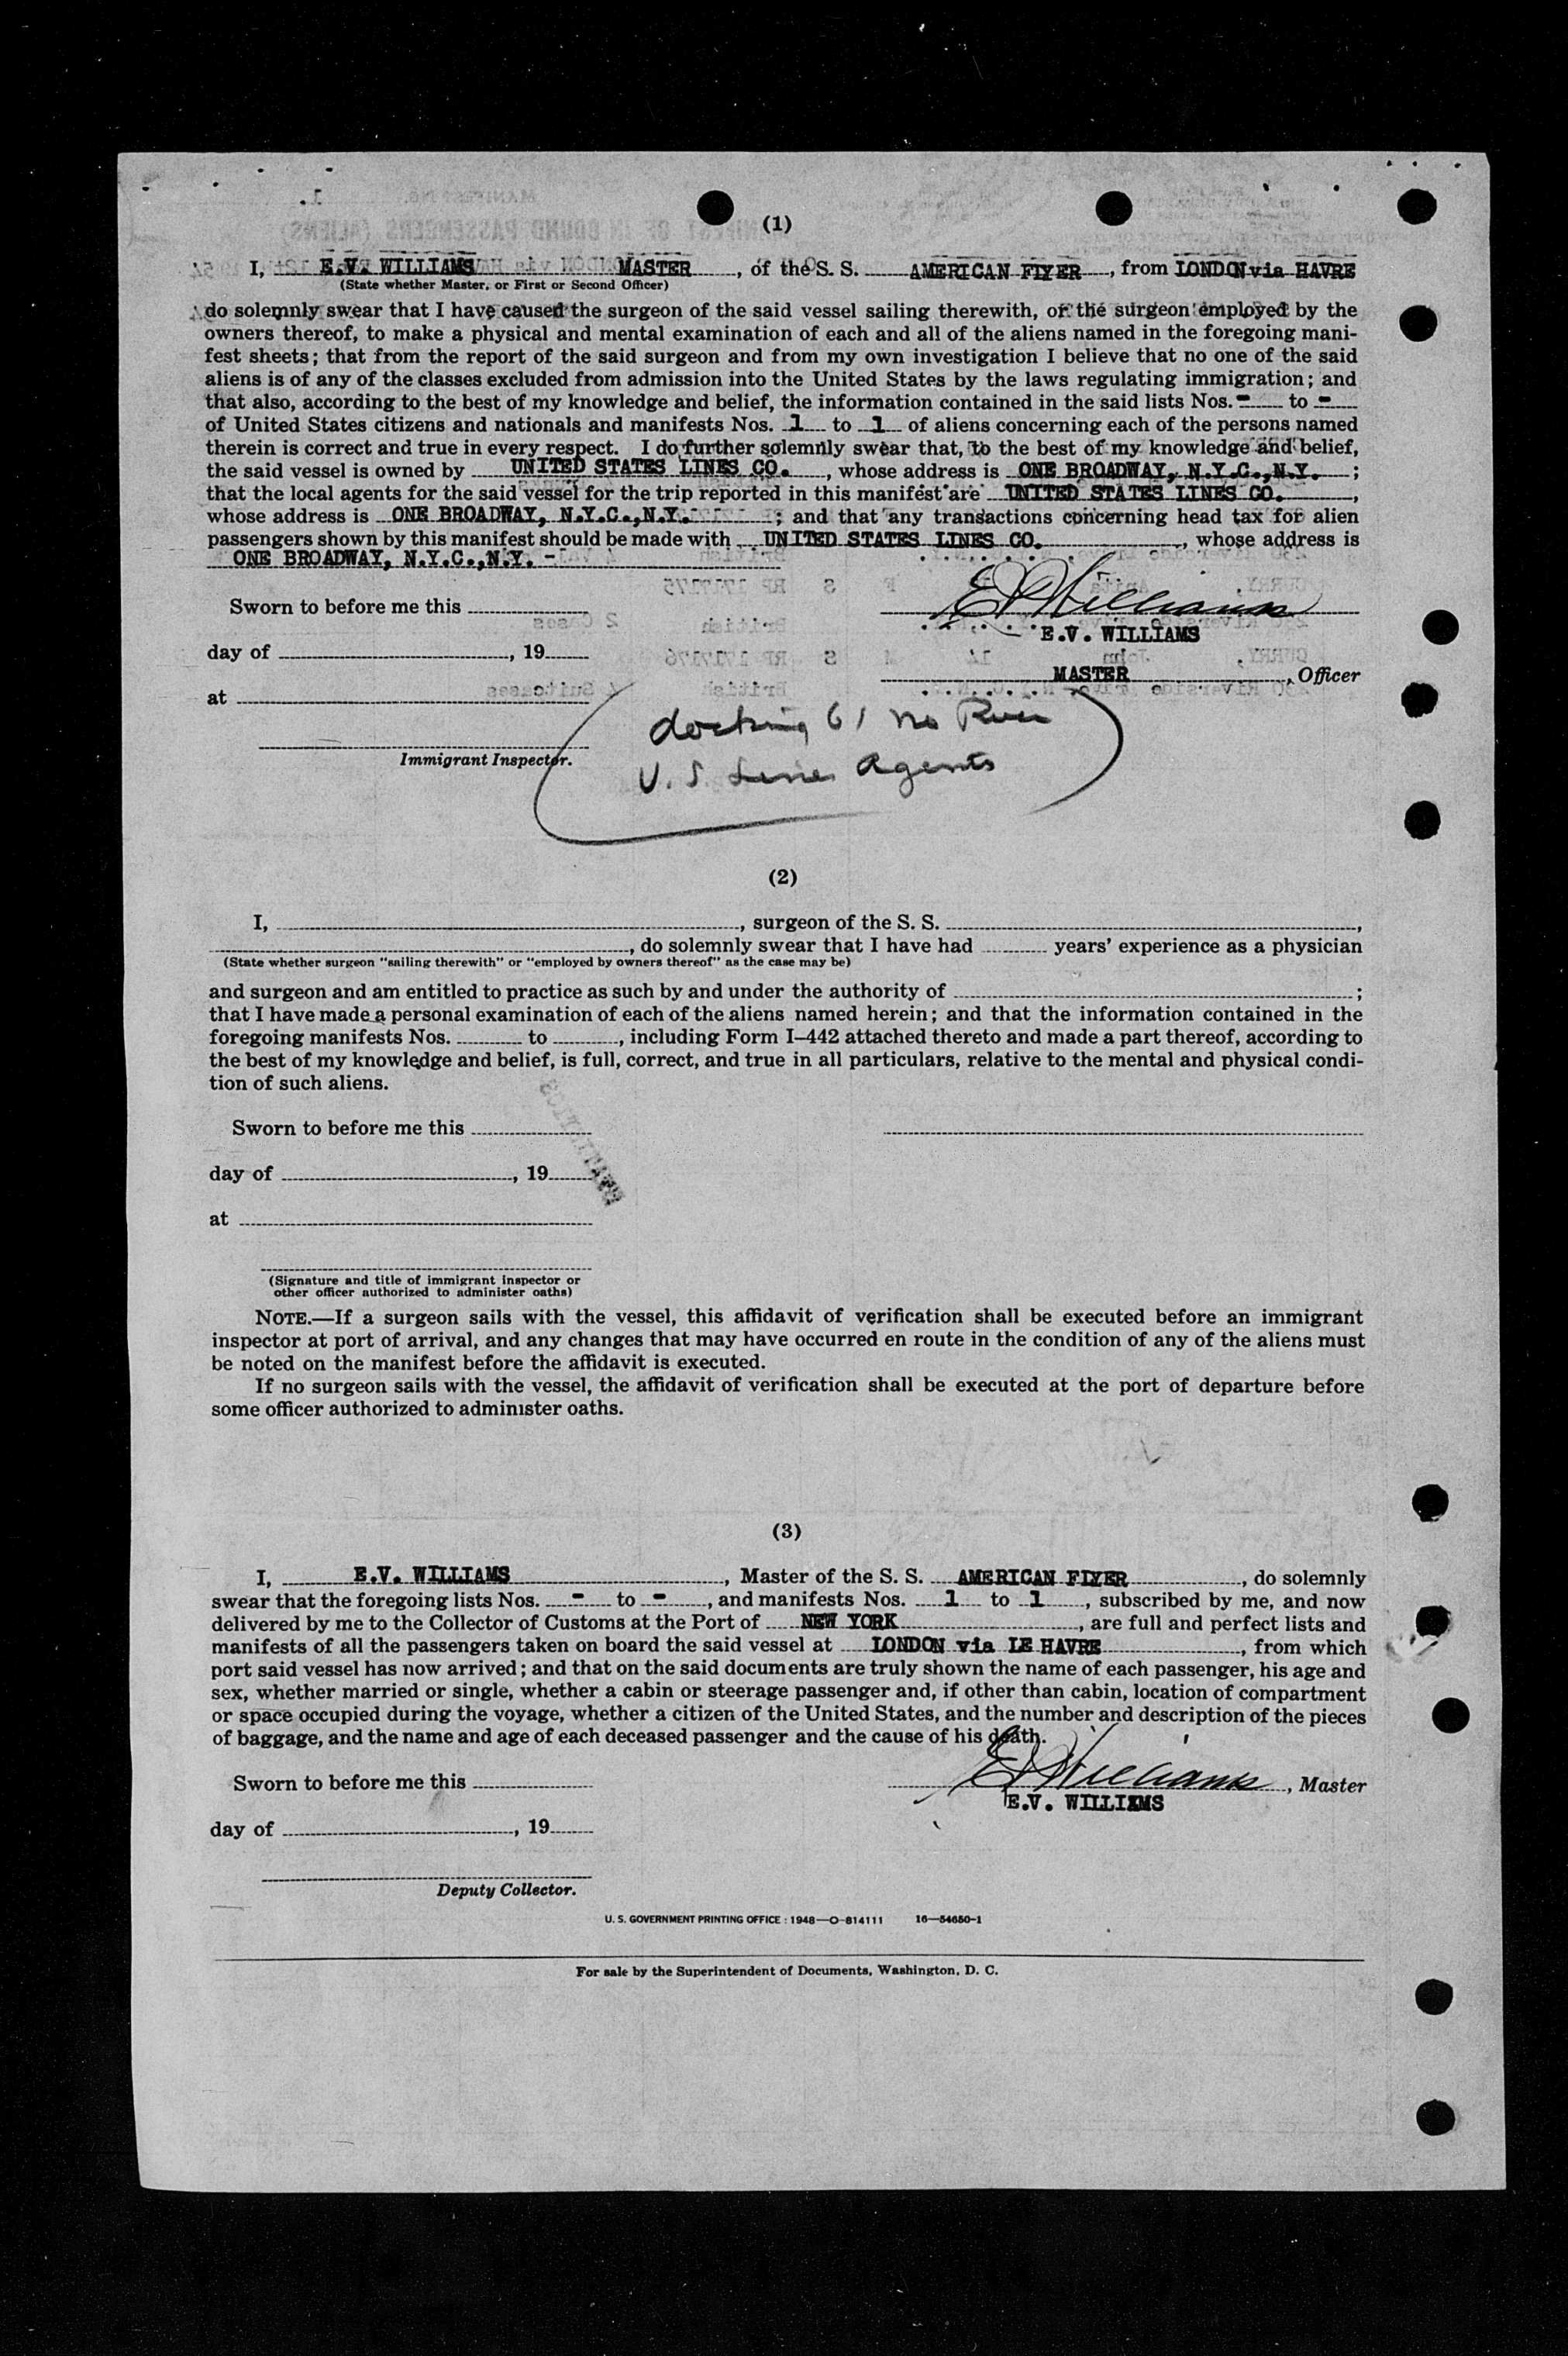 (1)
I, E.V. WILLIAMS MASTER, of the S. S. AMERICAN FLYER, from LONDON via HAVRE
(State whether Master, or First or Second Officer)
do solemnly swear that I have caused the surgeon of the said vessel sailing therewith, or the surgeon employed by the
owners thereof, to make a physical and mental examination of each and all of the aliens named in the foregoing mani-
fest sheets; that from the report of the said surgeon and from my own investigation I believe that no one of the said
aliens is of any of the classes excluded from admission into the United States by the laws regulating immigration; and
that also, according to the best of my knowledge and belief, the information contained in the said lists Nos. - to -
of United States citizens and nationals and manifests Nos. 1 to 1 of aliens concerning each of the persons named
therein is correct and true in every respect. I do further solemnly swear that, to the best of my knowledge and belief,
the said vessel is owned by UNITED STATES LINES CO., whose address is ONE BROADWAY, N.Y.C.,N.Y. ;
that the local agents for the said vessel for the trip reported in this manifest are UNITED STATES LINES CO. ,
whose address is ONE BROADWAY, N.Y.C.,N.Y. ; and that any transactions concerning head tax for alien
passengers shown by this manifest should be made with UNITED STATES LINES CO. , whose address is
ONE BROADWAY, N.Y.C.,N.Y. -
Sworn to before me this
E V Williams
E.V. WILLIAMS
day of , 19
MASTER , Officer
at
docking 61 no River
Immigrant Inspector.
U. S. Lines Agents
(2)
I, , surgeon of the S. S. ,
, do solemnly swear that I have had years' experience as a physician
(State whether surgeon "sailing therewith" or "employed by owners thereof" as the case may be)
and surgeon and am entitled to practice as such by and under the authority of ;
that I have made a personal examination of each of the aliens named herein; and that the information contained in the
foregoing manifests Nos. to , including Form I–442 attached thereto and made a part thereof, according to
the best of my knowledge and belief, is full, correct, and true in all particulars, relative to the mental and physical condi-
tion of such aliens.
Sworn to before me this
day of , 19
at
(Signature and title of immigrant inspector or
other officer authorized to administer oaths)
NOTE.—If a surgeon sails with the vessel, this affidavit of verification shall be executed before an immigrant
inspector at port of arrival, and any changes that may have occurred en route in the condition of any of the aliens must
be noted on the manifest before the affidavit is executed.
If no surgeon sails with the vessel, the affidavit of verification shall be executed at the port of departure before
some officer authorized to administer oaths.
(3)
I, E.V. WILLIAMS , Master of the S. S. AMERICAN FLYER , do solemnly
swear that the foregoing lists Nos. - to - , and manifests Nos. 1 to 1 , subscribed by me, and now
delivered by me to the Collector of Customs at the Port of NEW YORK , are full and perfect lists and
manifests of all the passengers taken on board the said vessel at LONDON via LE HAVRE , from which
port said vessel has now arrived; and that on the said documents are truly shown the name of each passenger, his age and
sex, whether married or single, whether a cabin or steerage passenger and, if other than cabin, location of compartment
or space occupied during the voyage, whether a citizen of the United States, and the number and description of the pieces
of baggage, and the name and age of each deceased passenger and the cause of his death.
Sworn to before me this
E V Williams , Master
E.V. WILLIAMS
day of , 19
Deputy Collector.
U. S. GOVERNMENT PRINTING OFFICE : 1948—O-814111 16—54650-1
For sale by the Superintendent of Documents, Washington, D. C.